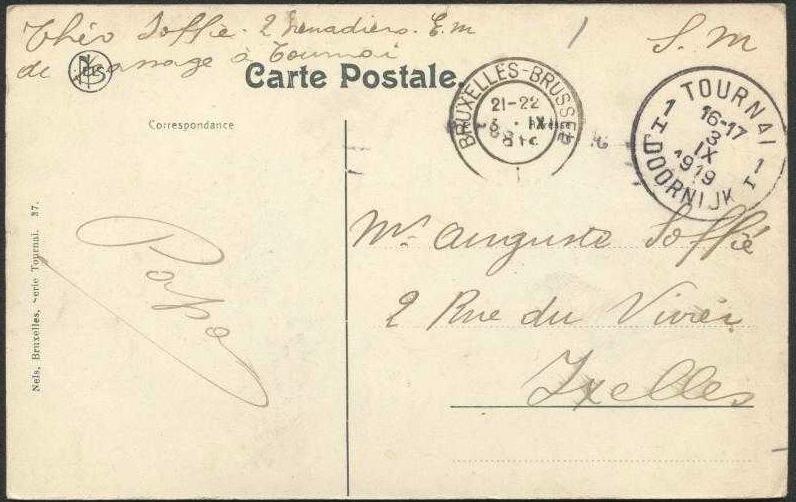 Théo Soffie. 2 Grenadiers. E.M
de passage à Tournai
S.M
Carte Postale.
Correspondance
BRUXELLES-BRUSSEL
21-22
IX
TOURNAI
1 I
16-17
3
IX
1919
1 I
DOORNIJK
Mr Auguste Soffié
2 Rue du Vivier
Ixelles
Papa
Nels, Bruxelles, Serie Tournai. 37.